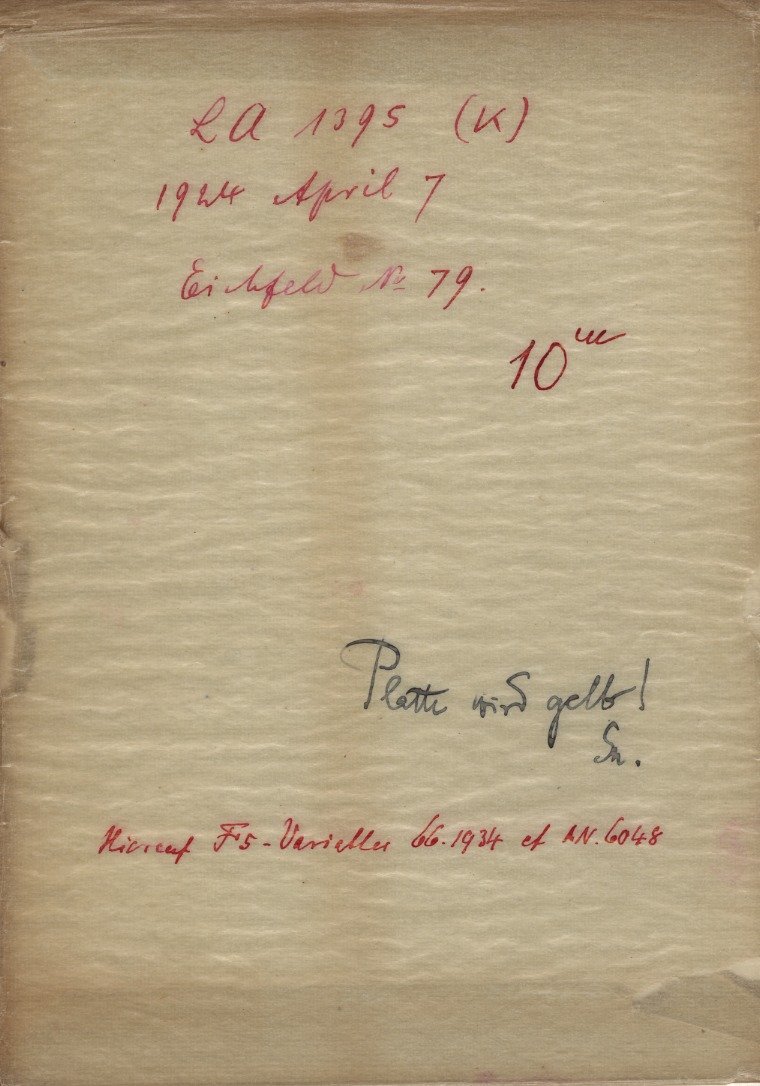 LA 1395 (K)
1924 April 7
Eichfeld No 79.
10m
Platte wird gelb!
Sn.
Hierauf F5-Variabler 66.1934 cf AN.6048